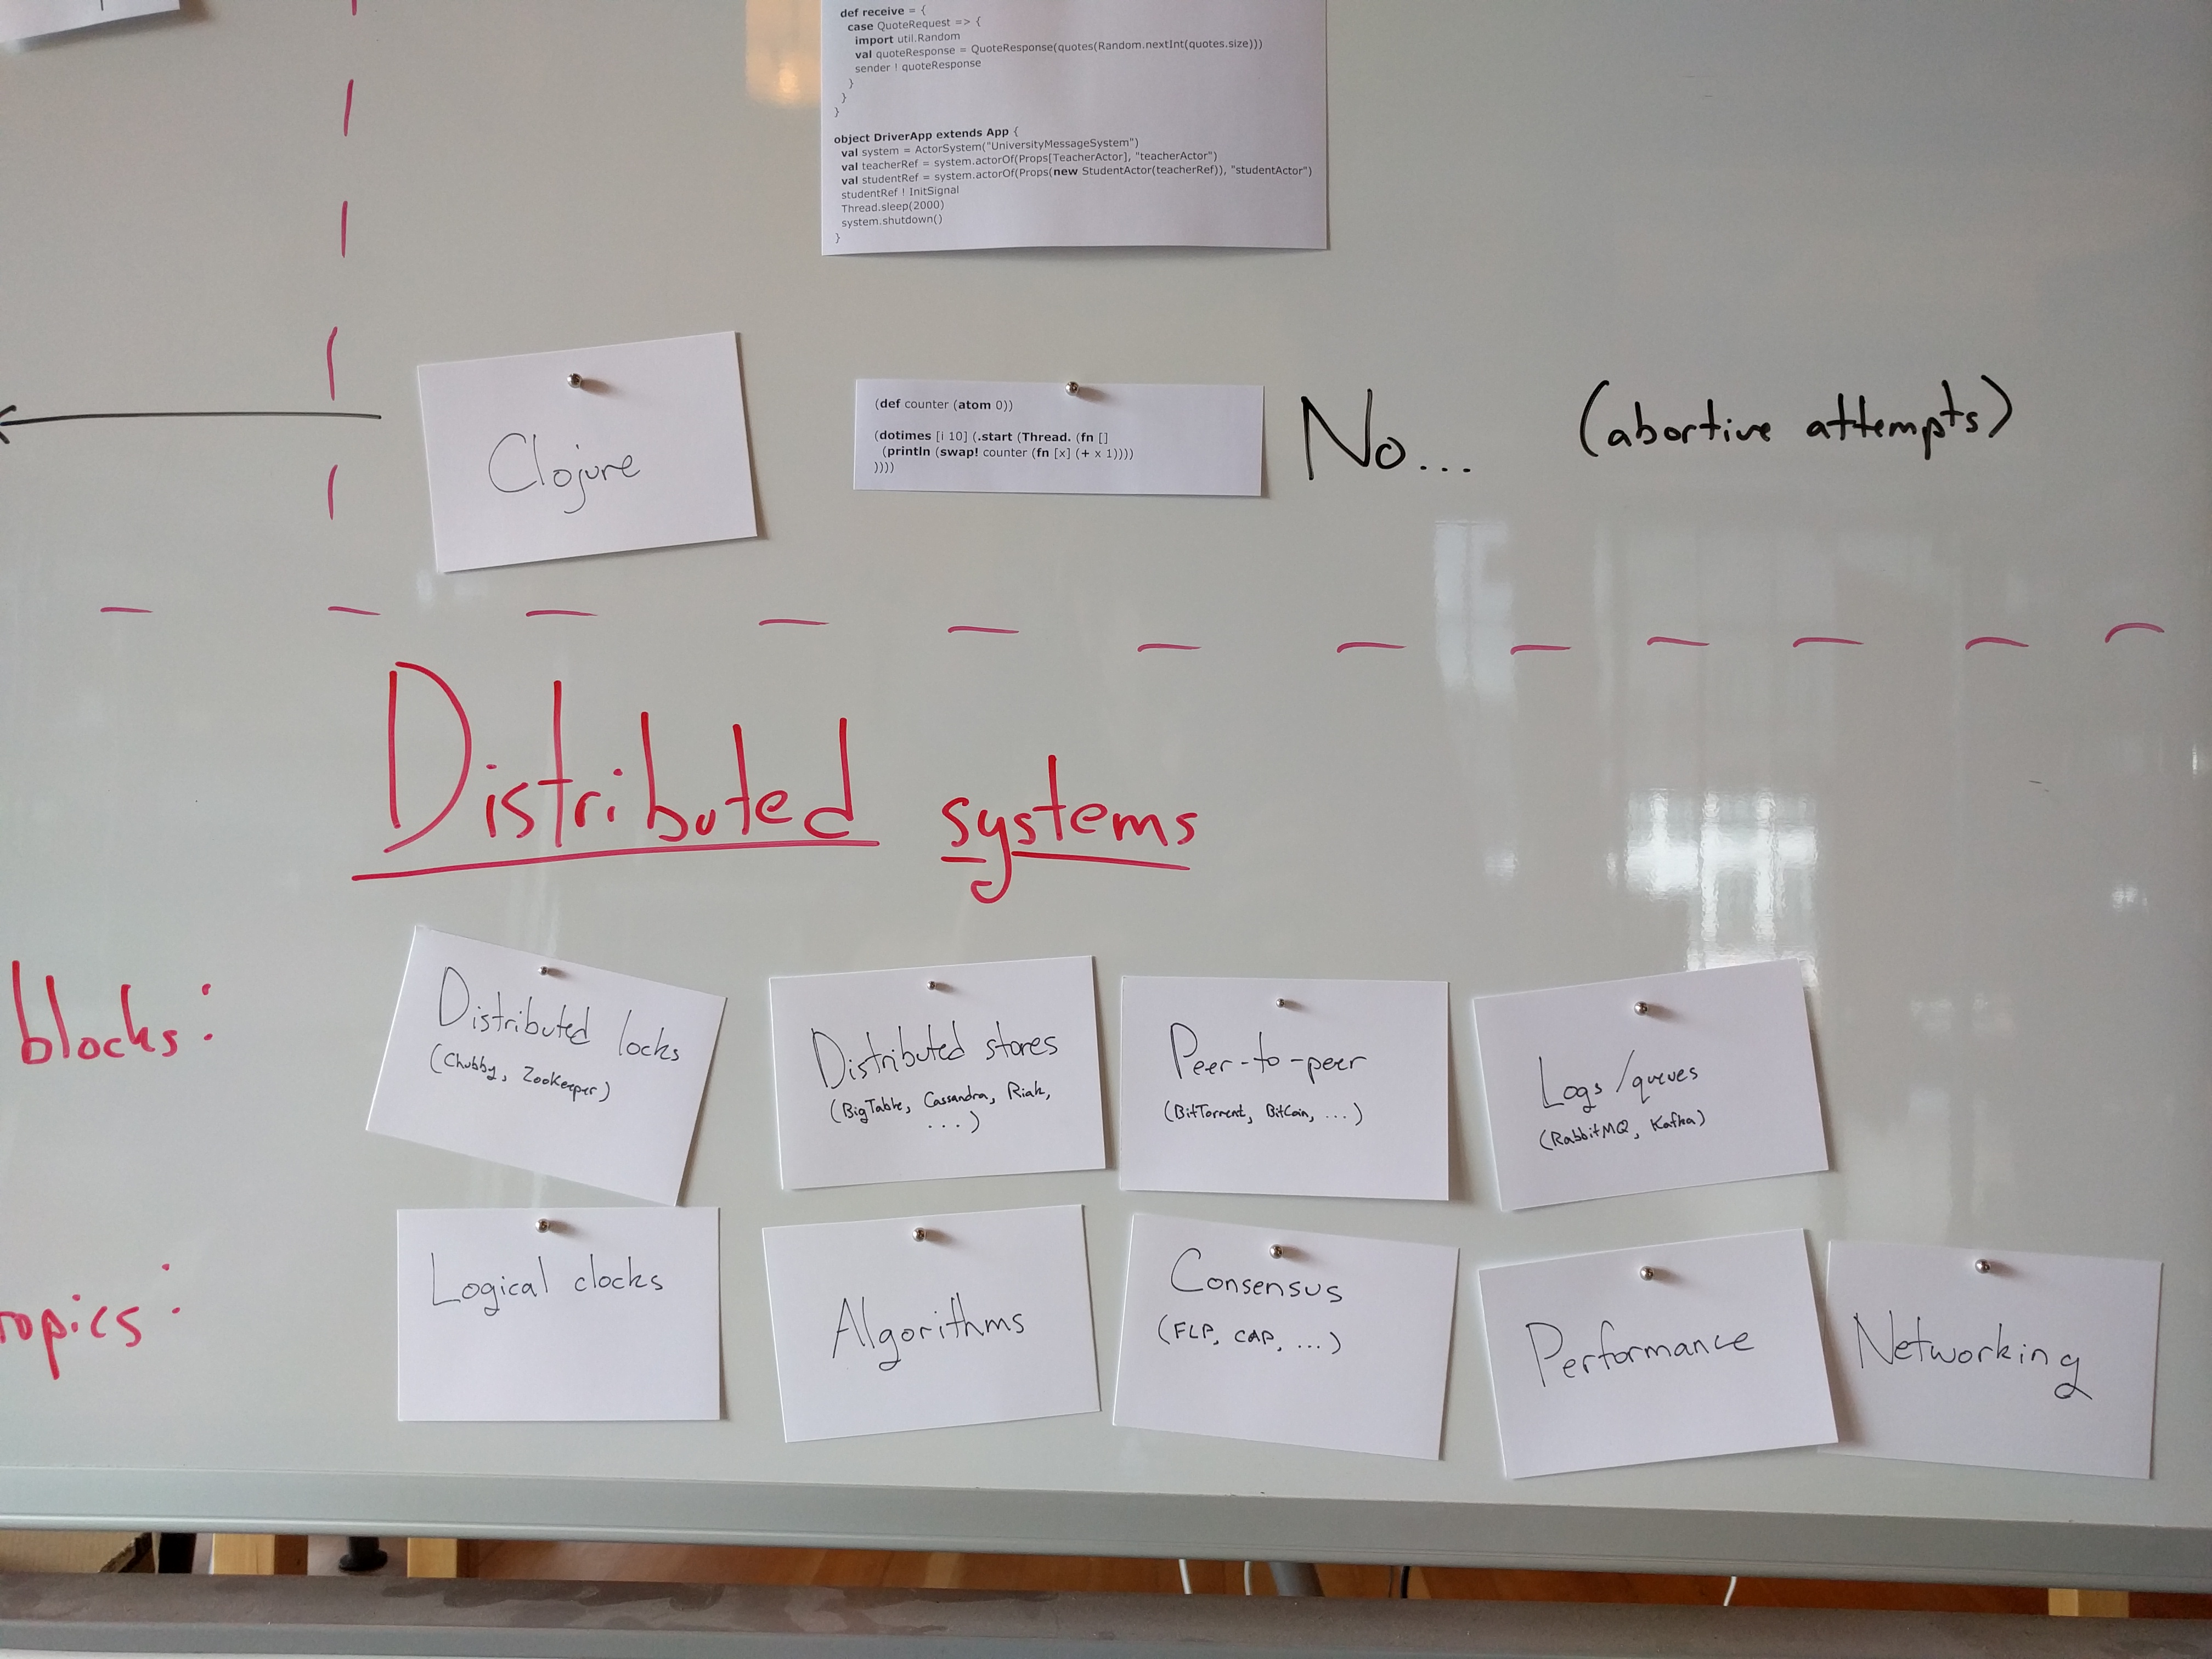 def receive = {
case QuoteRequest => {
import util.Random
val quoteResponse = QuoteResponse(quotes(Random.nextInt(quotes.size)))
sender ! quoteResponse
}
}
}
object DriverApp extends App {
val system = ActorSystem("UniversityMessageSystem")
val teacherRef = system.actorOf(Props[TeacherActor], "teacherActor")
val studentRef = system.actorOf(Props(new StudentActor(teacherRef)), "studentActor")
studentRef ! InitSignal
Thread.sleep(2000)
system.shutdown()
}
Clojure
(def counter (atom 0))
(dotimes [i 10] (.start (Thread. (fn []
(println (swap! counter (fn [x] (+ x 1))))
))))
No...
(abortive attempts)
Distributed systems
blocks:
Distributed locks
(Chubby, ZooKeeper)
Distributed stores
(BigTable, Cassandra, Riak,
...)
Peer-to-peer
(BitTorrent, BitCoin, ...)
Logs/queues
(RabbitMQ, Kafka)
topics:
Logical clocks
Algorithms
Consensus
(FLP, CAP, ...)
Performance
Networking